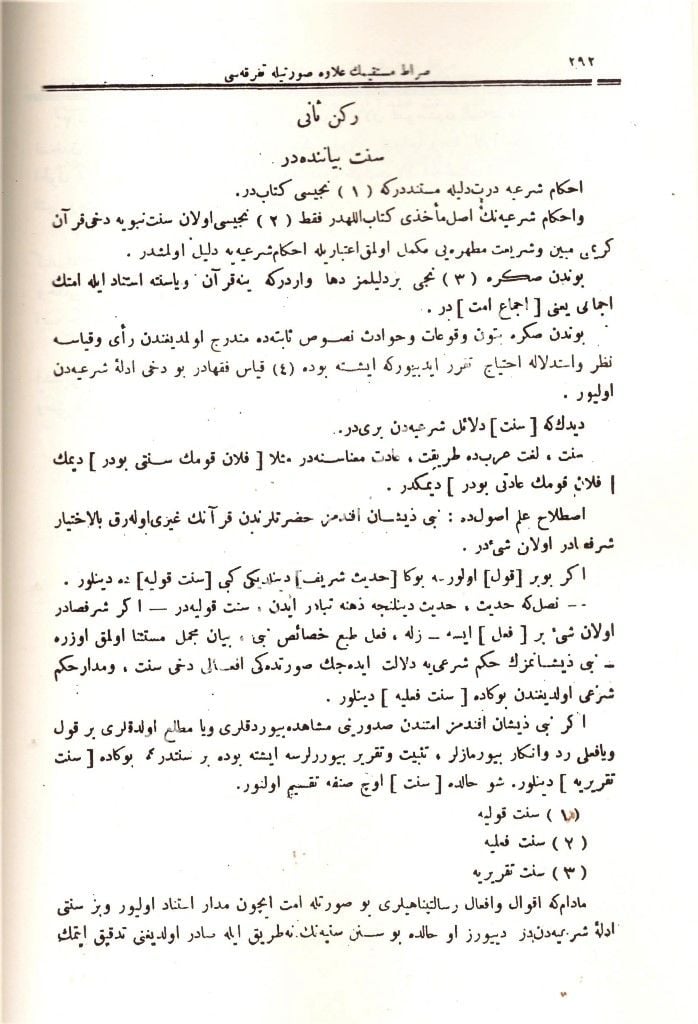 ٢٩٢
صراط مستقيمك علاوه صورتيله تفرقه‌سى
ركن ثانى
سنت بياننده‌در
احكام شرعيه درت دليله مستنددركه ( ١ ) نجيسى كتاب‌در.
واحكام شرعيه‌نك اصل مأخذى كتاب‌اللهدر فقط ( ٢ ) نجيسى اولان سنت نبويه دخى قرآن
كريمى مبين وشريعت مطهره‌يى مكمل اولمق اعتباريله احكام شرعيه‌يه دليل اولمشدر .
بوندن صكره ( ٣ ) نجى بردليلمز دها واردركه ينه قرآن وياسنته استناد ايله امتك
اجماعى يعنى [ اجماع امت ] در .
بوندن صكره بتون وقوعات وحوادث نصوص ثابته‌ده مندرج اولمديغندن رأى وقياسه
نظر واستدلاله احتياج تقرر ايدييوركه ايشته بوده (٤) قياس فقهادر بو دخى ادلهٔ شرعيه‌دن
اوليور .
ديدك‌كه [ سنت ] دلائل شرعيه‌دن برى‌در.
سنت ، لغت عرب‌ده طريقت ، عادت معناسنه‌در مثلا [ فلان قومك سنتى بودر ] ديمك
[ فلان قومك عادتى بودر ] ديمكدر .
اصطلاح علم اصول‌ده : نبى ذيشان افندمز حضرتلرندن قرآنك غيرى‌اوله‌رق بالاختيار
شرفصادر اولان شىٔ‌در .
اكر بوبر [قول] اولورسه بوكا [حديث شريف] دينلديكى كبى [سنت قوليه] ده دينلور .
ــ نصل‌كه حديث ، حديث دينلنجه ذهنه تبادر ايدن ، سنت قوليه‌در — اكر شرفصادر
اولان شىٔ بر [ فعل ] ايسه ــ زله ، فعل طبع خصائص نبى ، بيان مجمل مستثنا اولمق اوزره
ــ نبى ذيشانمزك حكم شرعى‌يه دلالت ايده‌جك صورتده‌كى افعالى دخى سنت ، ومدارحكم
شرعى اولديغندن بوكاده [ سنت فعليه ] دينلور .
اكر نبى ذيشان افندمز امتندن صدورنى مشاهده‌بيوردقلرى ويا مطلع اولدقلرى بر قول
ويافعلى رد وانكار بيورمازلر ، تثبيت وتقرير بيوررلرسه ايشته بوده بر سنتدر كه بوكاده [ سنت
تقريريه ] دينلور. شو حالده [ سنت ] اوچ صنفه تقسيم اولنور.
( ١ ) سنت قوليه
( ٢ ) سنت فعليه
( ٣ ) سنت تقريريه
مادام‌كه اقوال وافعال رسالتپناهيلرى بو صورتله امت ايچون مدار استناد اوليور وبز سنتى
ادلهٔ شرعيه‌دن‌در دييورز او حالده بو سنن سنيه‌نك نه‌طريق ايله صادر اولديغنى تدقيق ايتمك